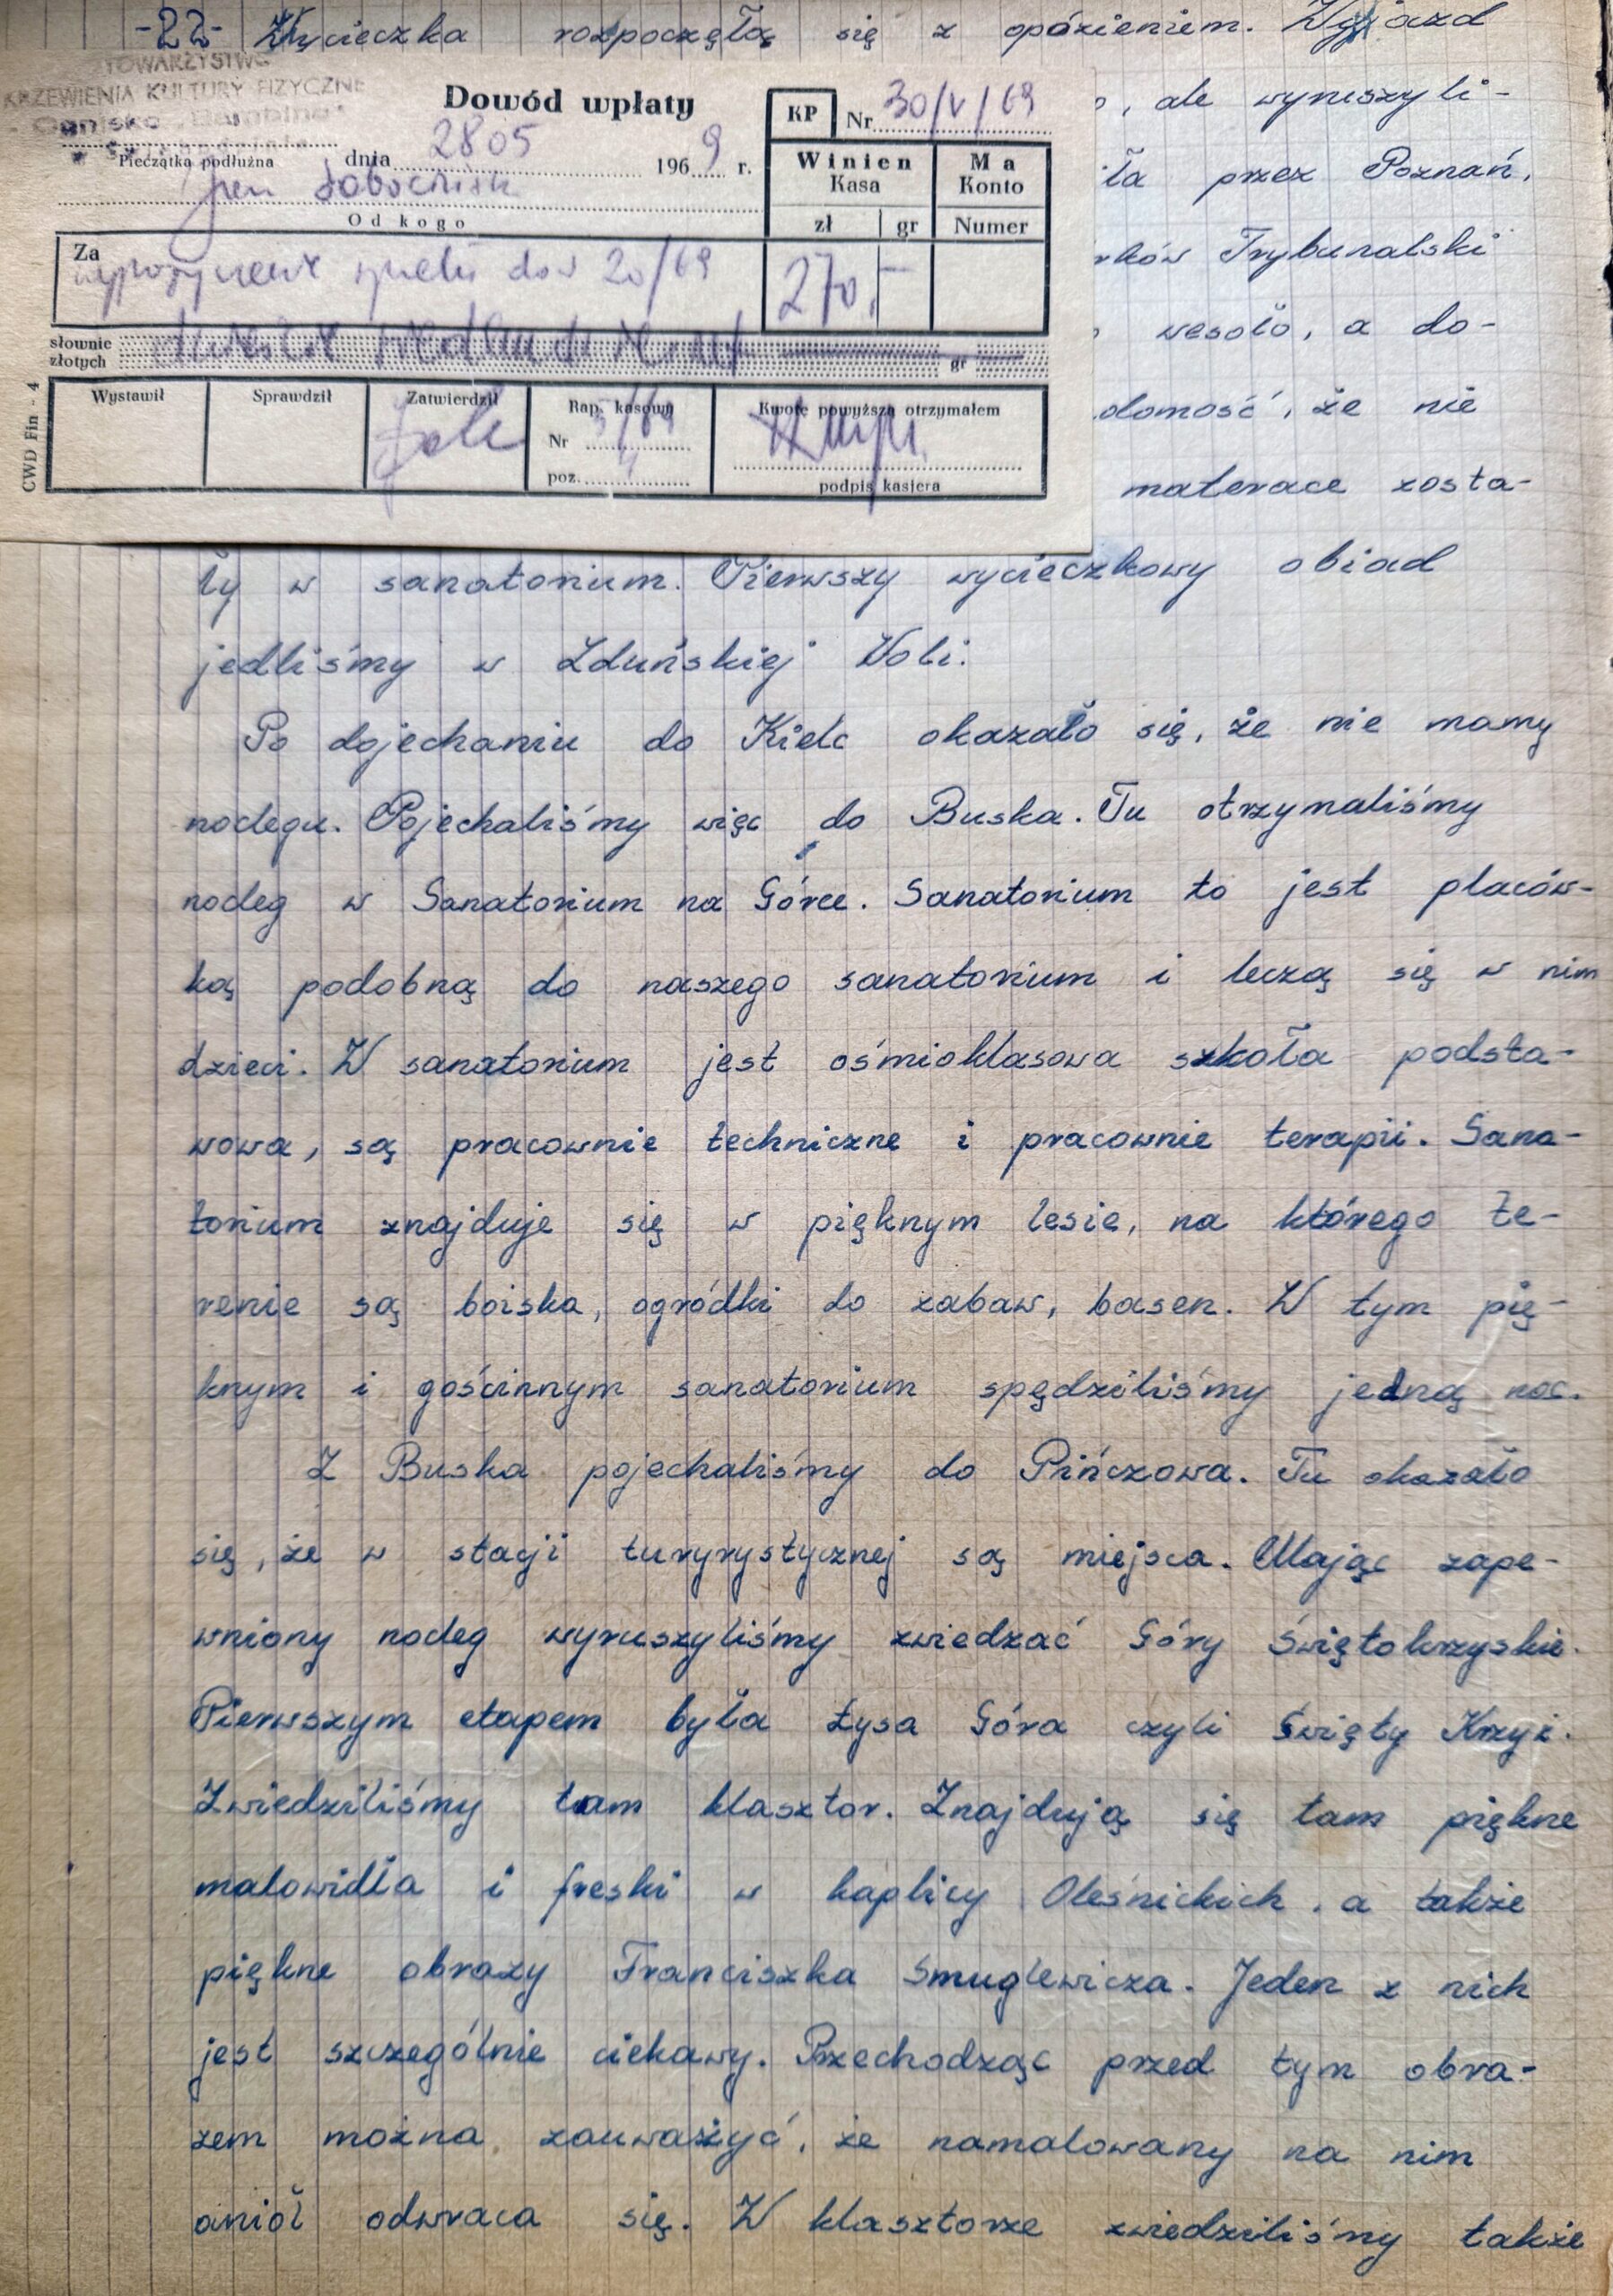 -22- Wycieczka rozpoczęła się z opóznieniem. Wyjazd
TOWARZYSTWO
KRZEWIENIA KULTURY FIZYCZNE
Ognisko
Dowód wpłaty
KP Nr 30/V/69
Pieczątka podłużna dnia 2805 1969 r.
Od kogo
Winien Kasa
Ma Konto
zł gr Numer
Za
wypożyczenie sprzętu 20/69
270,-
słownie złotych
dwieście siedemdziesiąt gr
Wystawił Sprawdził Zatwierdził Rap. kasowy Kwotę powyższą otrzymałem
Nr 5/69
poz. 4
podpis kasjera
CWD Fin - 4
, ale wyruszyli-
ła przez Poznań,
rków Trybunalski
wesoło, a do-
domość, że nie
materace zosta-
ły w sanatorium. Pierwszy wycieczkowy obiad
jedliśmy w Zduńskiej Woli.
Po dojechaniu do Kielc okazało się, że nie mamy
noclegu. Pojechaliśmy więc do Buska. Tu otrzymaliśmy
nocleg w Sanatorium na Górce. Sanatorium to jest placów-
ką podobną do naszego sanatorium i leczą się w nim
dzieci. W sanatorium jest ośmioklasowa szkoła podsta-
wowa, są pracownie techniczne i pracownie terapii. Sana-
torium znajduje się w pięknym lesie, na którego te-
renie są boiska, ogródki do zabaw, basen. W tym pię-
knym i gościnnym sanatorium spędziliśmy jedną noc.
Z Buska pojechaliśmy do Pińczowa. Tu okazało
się, że w stacji turyrystycznej są miejsca. Mając zape-
wniony nocleg wyruszyliśmy zwiedzać Góry Świętokrzyskie.
Pierwszym etapem była Łysa Góra czyli Święty Krzyż.
Zwiedziliśmy tam klasztor. Znajdują się tam piękne
malowidła i freski w kaplicy Oleśnickich, a także
piękne obrazy Franciszka Smuglewicza. Jeden z nich
jest szczególnie ciekawy. Przechodząc przed tym obra-
zem można zauważyć, że namalowany na nim
anioł odwraca się. W klasztorze zwiedziliśmy także